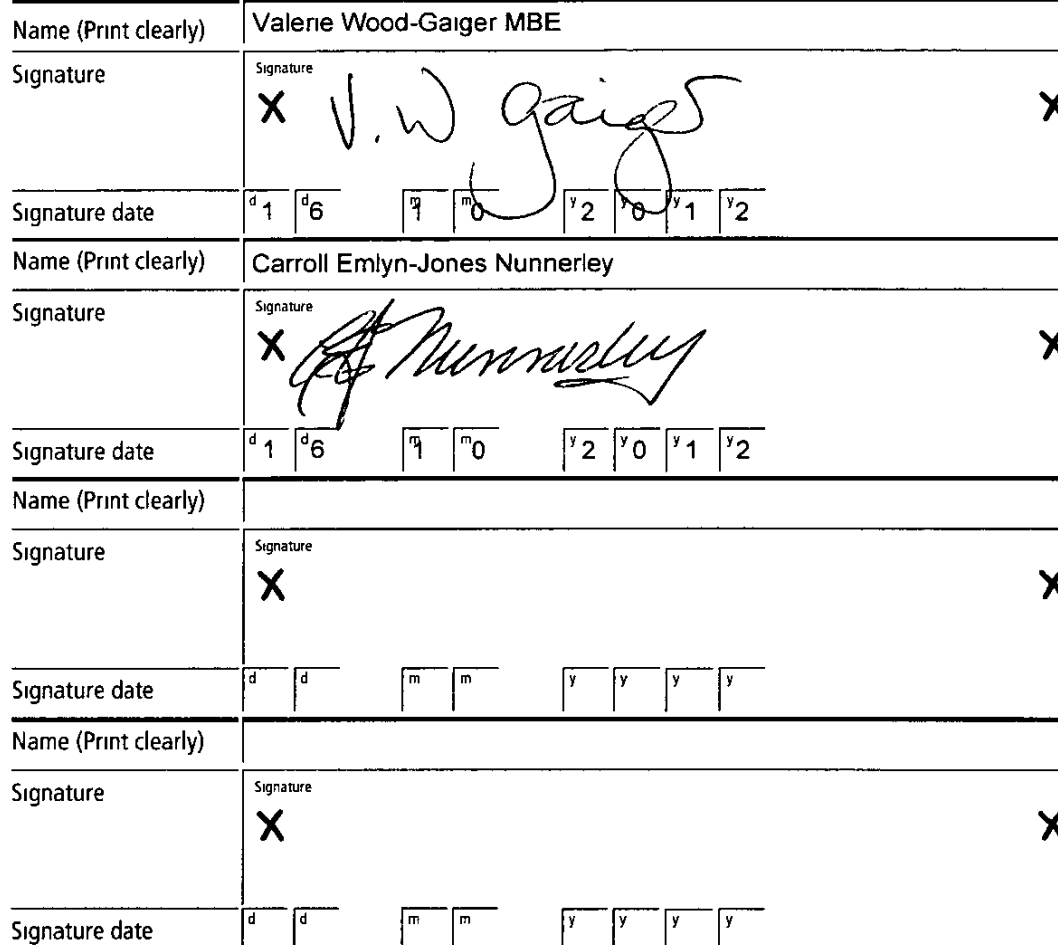 Name (Print clearly) Valerie Wood-Gaiger MBE
Signature Signature
X V. W Gaiger X
Signature date d1 d6 m1 m0 y2 y0 y1 y2
Name (Print clearly) Carroll Emlyn-Jones Nunnerley
Signature Signature
X Nunnerley X
Signature date d1 d6 m1 m0 y2 y0 y1 y2
Name (Print clearly)
Signature Signature
X X
Signature date d d m m y y y y
Name (Print clearly)
Signature Signature
X X
Signature date d d m m y y y y